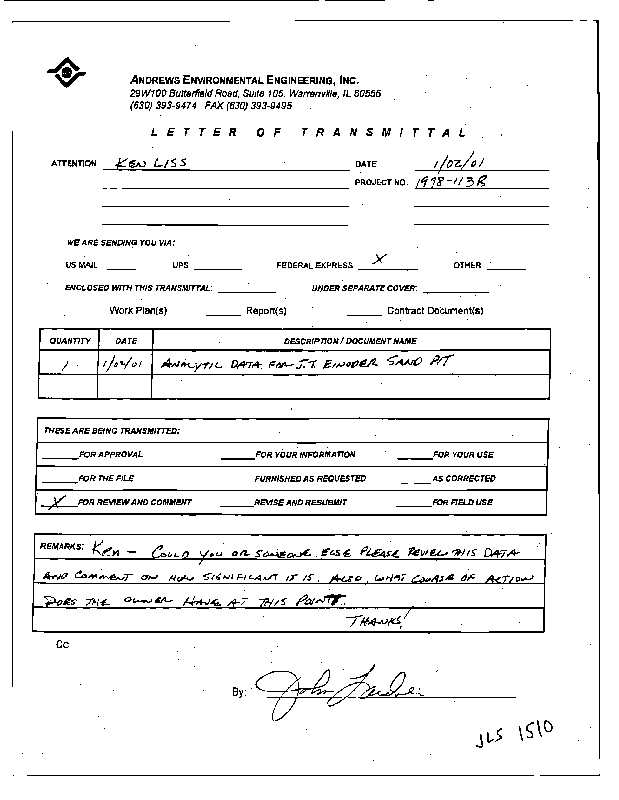 ANDREWS ENVIRONMENTAL ENGINEERING, INC.
29W100 Butterfield Road, Suite 105, Warrenville, IL 60555
(630) 393-9474 FAX (630) 393-9495
LETTER OF TRANSMITTAL
ATTENTION KEN LISS DATE 1/02/01
PROJECT NO. 1998-113R
WE ARE SENDING YOU VIA:
US MAIL UPS FEDERAL EXPRESS X OTHER
ENCLOSED WITH THIS TRANSMITTAL: UNDER SEPARATE COVER:
Work Plan(s) Report(s) Contract Document(s)
QUANTITY DATE DESCRIPTION / DOCUMENT NAME
1 1/02/01 ANALYTIC DATA FOR J.T. EINODER SAND PIT
THESE ARE BEING TRANSMITTED:
FOR APPROVAL FOR YOUR INFORMATION FOR YOUR USE
FOR THE FILE FURNISHED AS REQUESTED AS CORRECTED
X FOR REVIEW AND COMMENT REVISE AND RESUBMIT FOR FIELD USE
REMARKS: KEN - COULD YOU OR SOMEONE ELSE PLEASE REVIEW THIS DATA
AND COMMENT ON HOW SIGNIFICANT IT IS. ALSO, WHAT COURSE OF ACTION
DOES THE OWNER HAVE AT THIS POINT.
THANKS!
Cc
By: John
JLS 1510